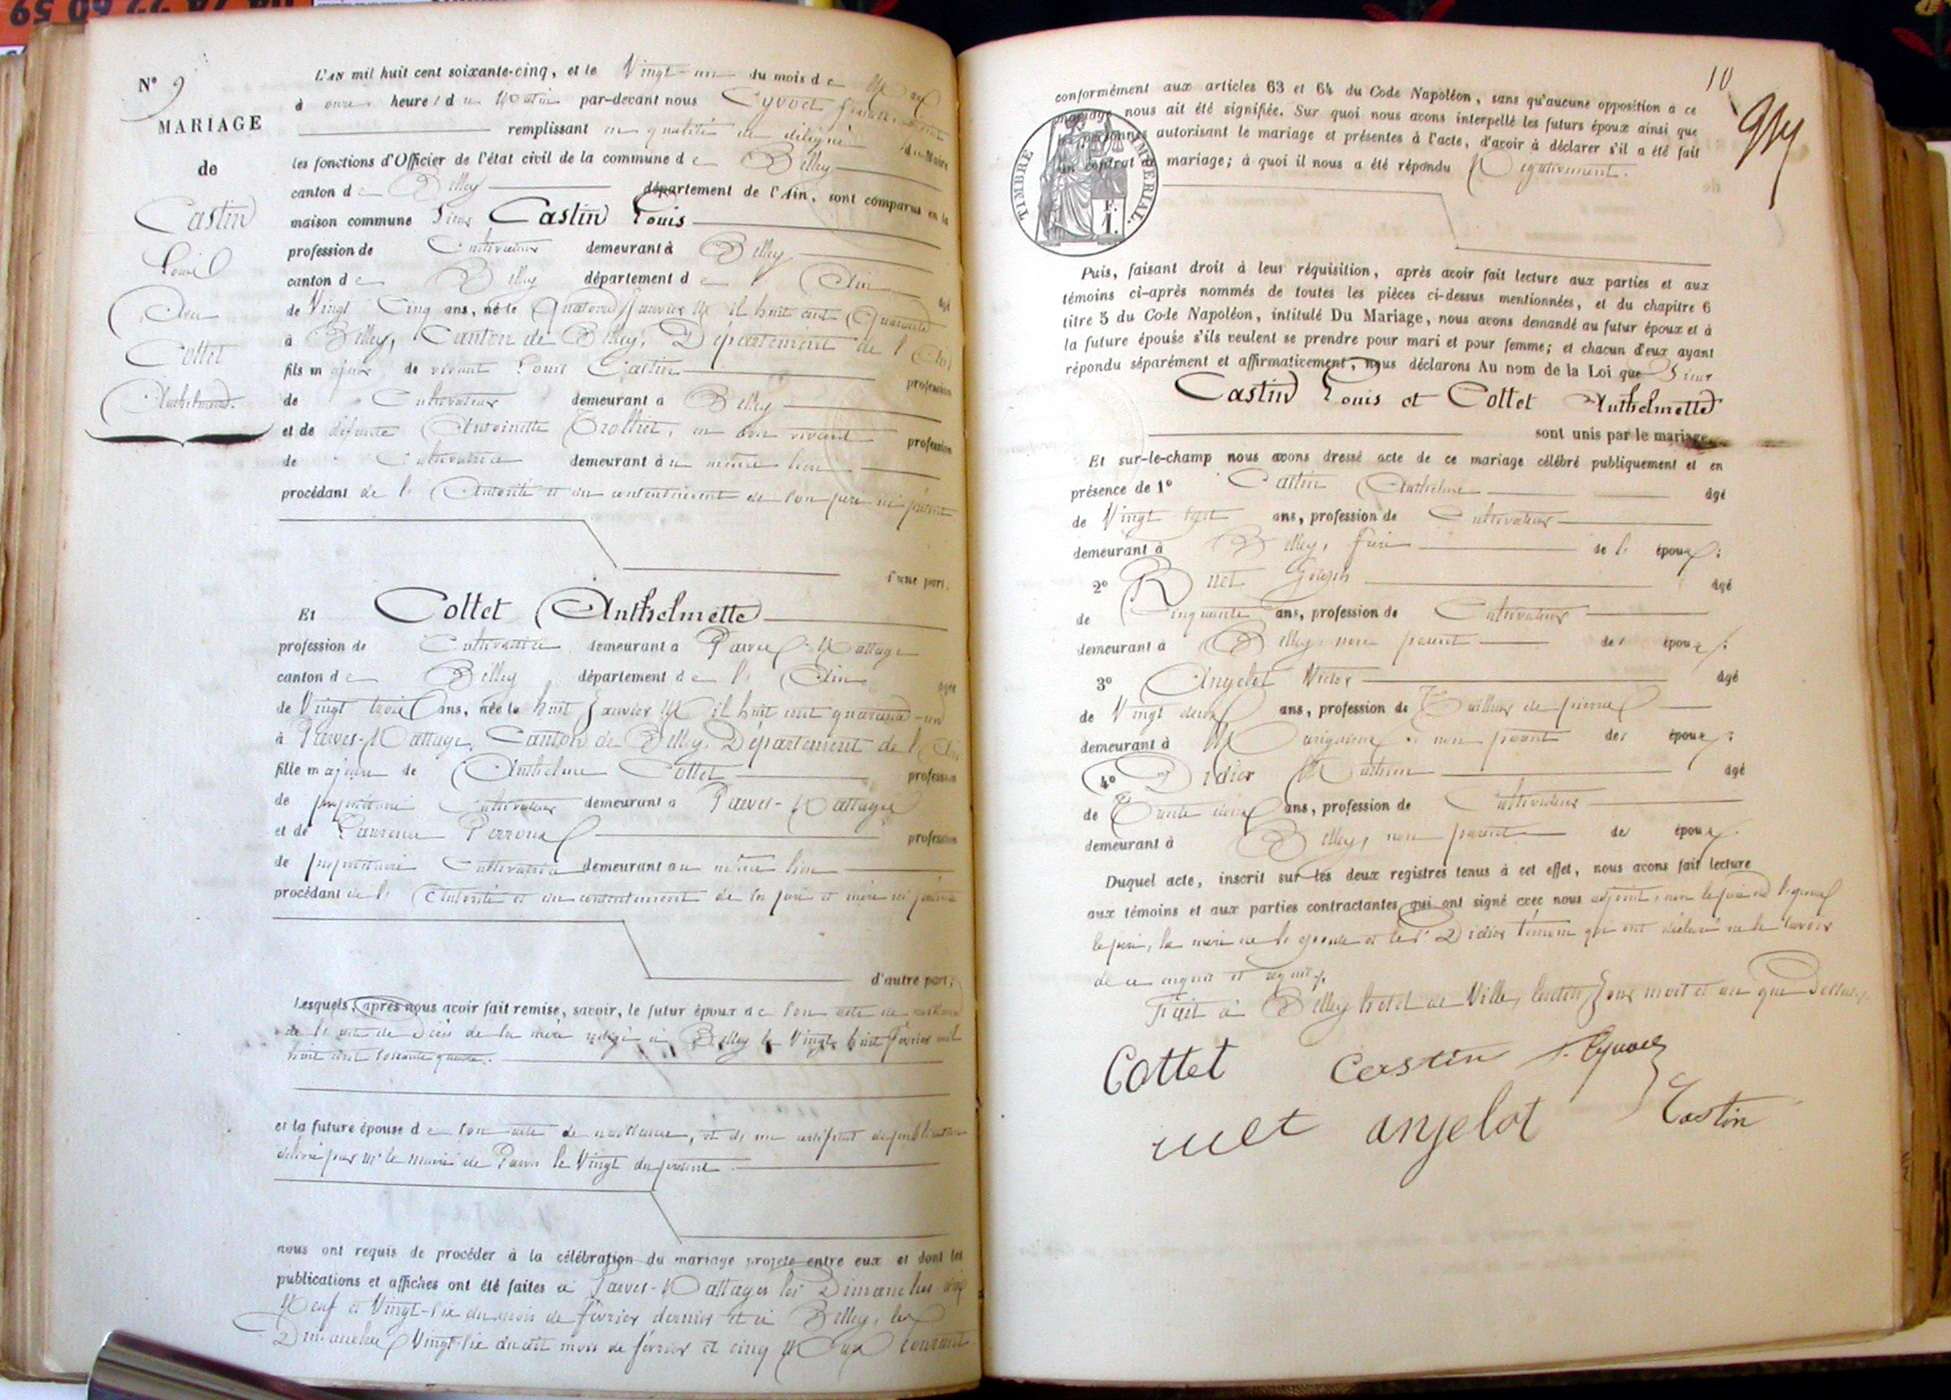 N° 9
MARIAGE
de
Castin
Louis
Avec
Cottet
Anthelmette
L'AN mil huit cent soixante-cinq, et le Vingt-un du mois de Mars
à onze heures du Matin par-devant nous Eyvoct
remplissant en qualité de délégué du Maire
les fonctions d'Officier de l'état civil de la commune de Belley
canton de Belley département de l'Ain, sont comparus en la
maison commune Sieur Castin Louis
profession de Cultivateur demeurant à Belley
canton de Belley département de l'Ain âgé
de Vingt Cinq ans, né le Quatorze Janvier Mil huit cent Quarante
à Belley, Canton de Belley, Département de l'Ain
fils majeur de vivant Louis Castin profession
de Cultivateur demeurant à Belley
et de défunte Antoinette Trolliet, en son vivant profession
de Cultivatrice demeurant au même lieu
procédant de l'Autorité et du consentement de son père ici présent
d'une part,
Et Cottet Anthelmette
profession de Cultivatrice demeurant à Parves-Nattage
canton de Belley département de l'Ain âgée
de Vingt trois ans, née le huit Janvier Mil huit cent quarante-un
à Parves-Nattage, Canton de Belley, Département de l'Ain
fille majeure de Anthelme Cottet profession
de propriétaire Cultivateur demeurant à Parves-Nattages
et de Laurence Perroux profession
de propriétaire Cultivatrice demeurant au même lieu
procédant de l'Autorité et du consentement de ses père et mère ici présents
d'autre part;
Lesquels, après nous avoir fait remise, savoir, le futur époux de son acte de naissance
de l'acte de Décès de sa mère rédigé à Belley le Vingt huit février mil
huit cent soixante quatre.
et la future épouse de son acte de naissance, et d'un certificat de publication
délivré par Mr le Maire de Parves le Vingt du présent
nous ont requis de procéder à la célébration du mariage projeté entre eux et dont les
publications et affiches ont été faites à Parves-Nattages les Dimanches dix
Neuf et Vingt-six du mois de février dernier et à Belley, les
Dimanches Vingt-six dudit mois de février et cinq Mars courant
10
conformément aux articles 63 et 64 du Code Napoléon, sans qu'aucune opposition à ce
mariage nous ait été signifiée. Sur quoi nous avons interpellé les futurs époux ainsi que
personnes autorisant le mariage et présentes à l'acte, d'avoir à déclarer s'il a été fait
un contrat de mariage; à quoi il nous a été répondu Négativement.
TIMBRE IMPÉRIAL.
F.
1.
Puis, faisant droit à leur réquisition, après avoir fait lecture aux parties et aux
témoins ci-après nommés de toutes les pièces ci-dessus mentionnées, et du chapitre 6
titre 5 du Code Napoléon, intitulé Du Mariage, nous avons demandé au futur époux et à
la future épouse s'ils veulent se prendre pour mari et pour femme; et chacun d'eux ayant
répondu séparément et affirmativement, nous déclarons Au nom de la Loi que Sieur
Castin Louis et Cottet Anthelmette
sont unis par le mariage.
Et sur-le-champ nous avons dressé acte de ce mariage célébré publiquement et en
présence de 1° Castin Anthelme âgé
de Vingt sept ans, profession de Cultivateur
demeurant à Belley, frère de l'époux;
2° Ruet Joseph âgé
de Cinquante ans, profession de Cultivateur
demeurant à Belley, non parent des époux;
3° Angelot Victor âgé
de Vingt deux ans, profession de Tailleur de pierres
demeurant à non parent des époux;
4° Didier Martin âgé
de Trente deux ans, profession de Cultivateur
demeurant à Belley, non parent des époux.
Duquel acte, inscrit sur les deux registres tenus à cet effet, nous avons fait lecture
aux témoins et aux parties contractantes qui ont signé avec nous adjoint, non le père de l'époux
le père, la mère de l'épouse et le Sr Didier témoin qui ont déclaré ne le savoir
de ce enquis et requis.
Fait à Belley hôtel de Ville, lesdits Jour mois et an que dessus.
Cottet Castin Eyvoct
ruet angelot Castin